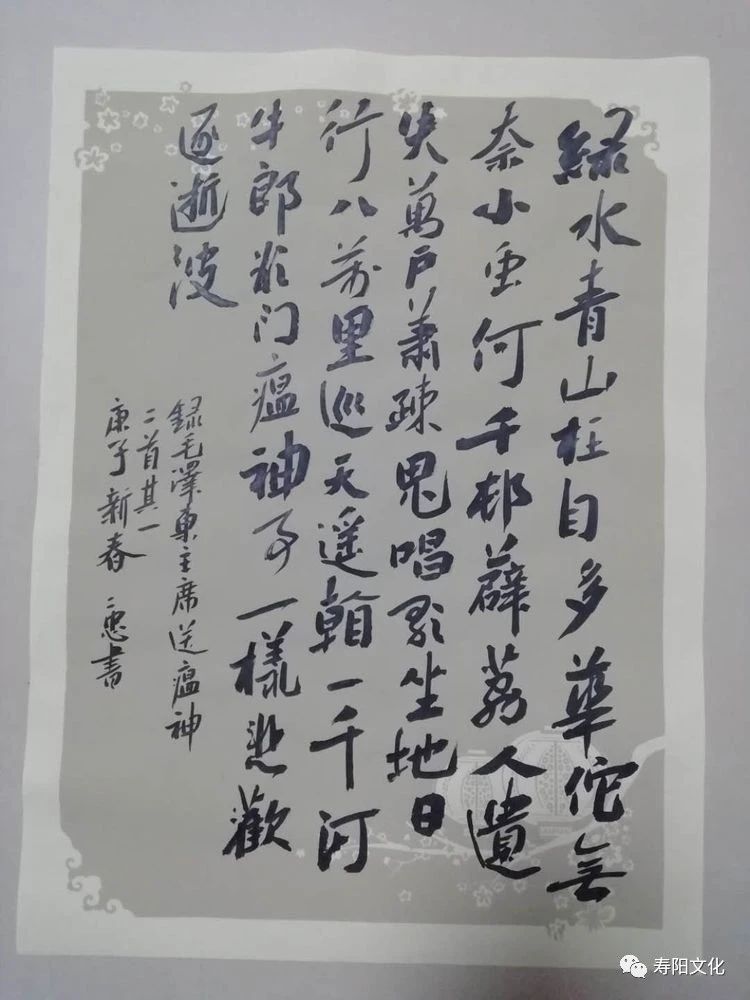 緑水青山枉自多華佗無
奈小虫何千邨薜荔人遺
失萬户蕭疎鬼唱歌坐地日
行八萬里巡天遥看一千河
牛郎欲问瘟神事一樣悲歡
逐逝波
録毛澤東主席送瘟神
二首其一
庚子新春 惠書
寿阳文化